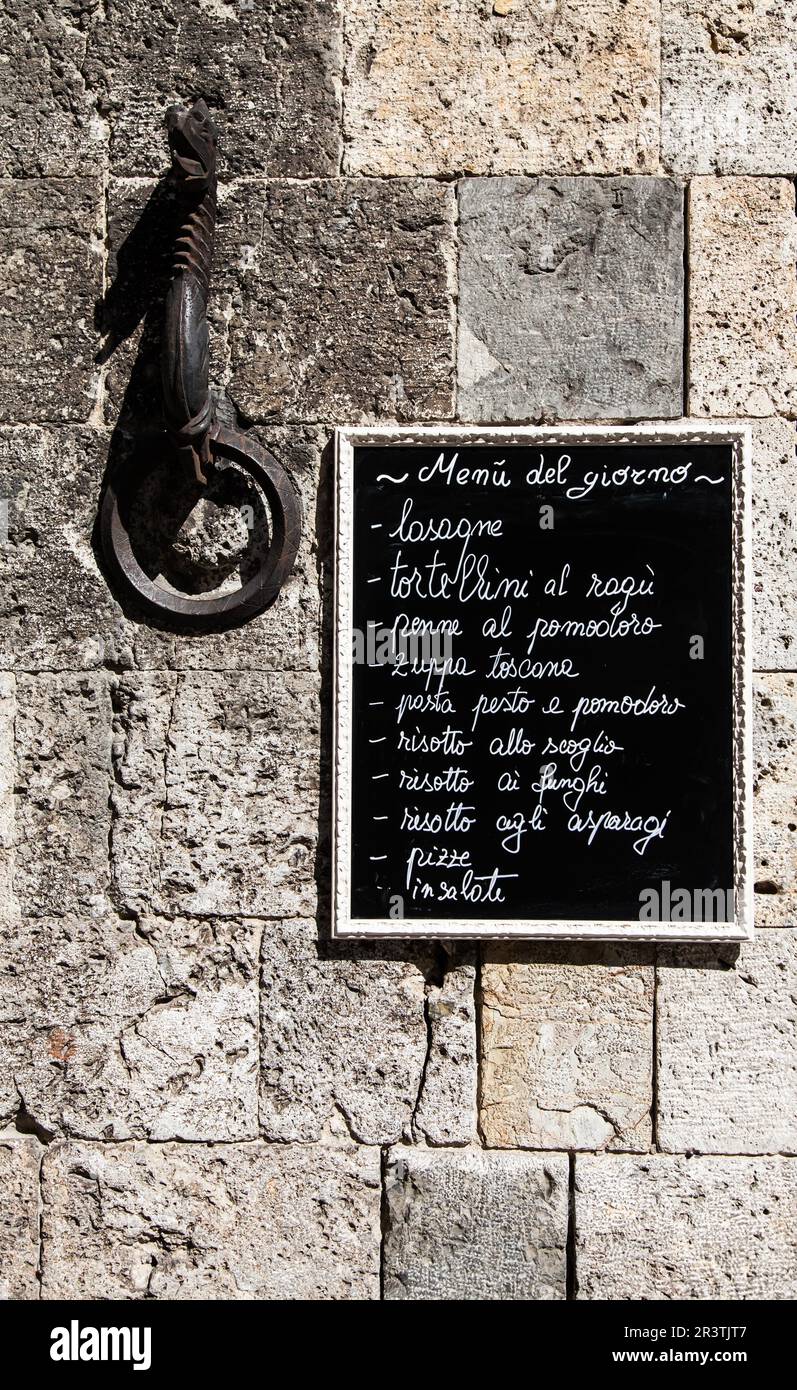 ~ Menũ del giorno ~
- lasagne
- tortellini al ragù
- penne al pomodoro
- zuppa toscana
- pasta pesto e pomodoro
- risotto allo scoglio
- risotto ai funghi
- risotto agli asparagi
- pizze
- insalate
alamy
Image ID: 2R3TJT7
www.alamy.com